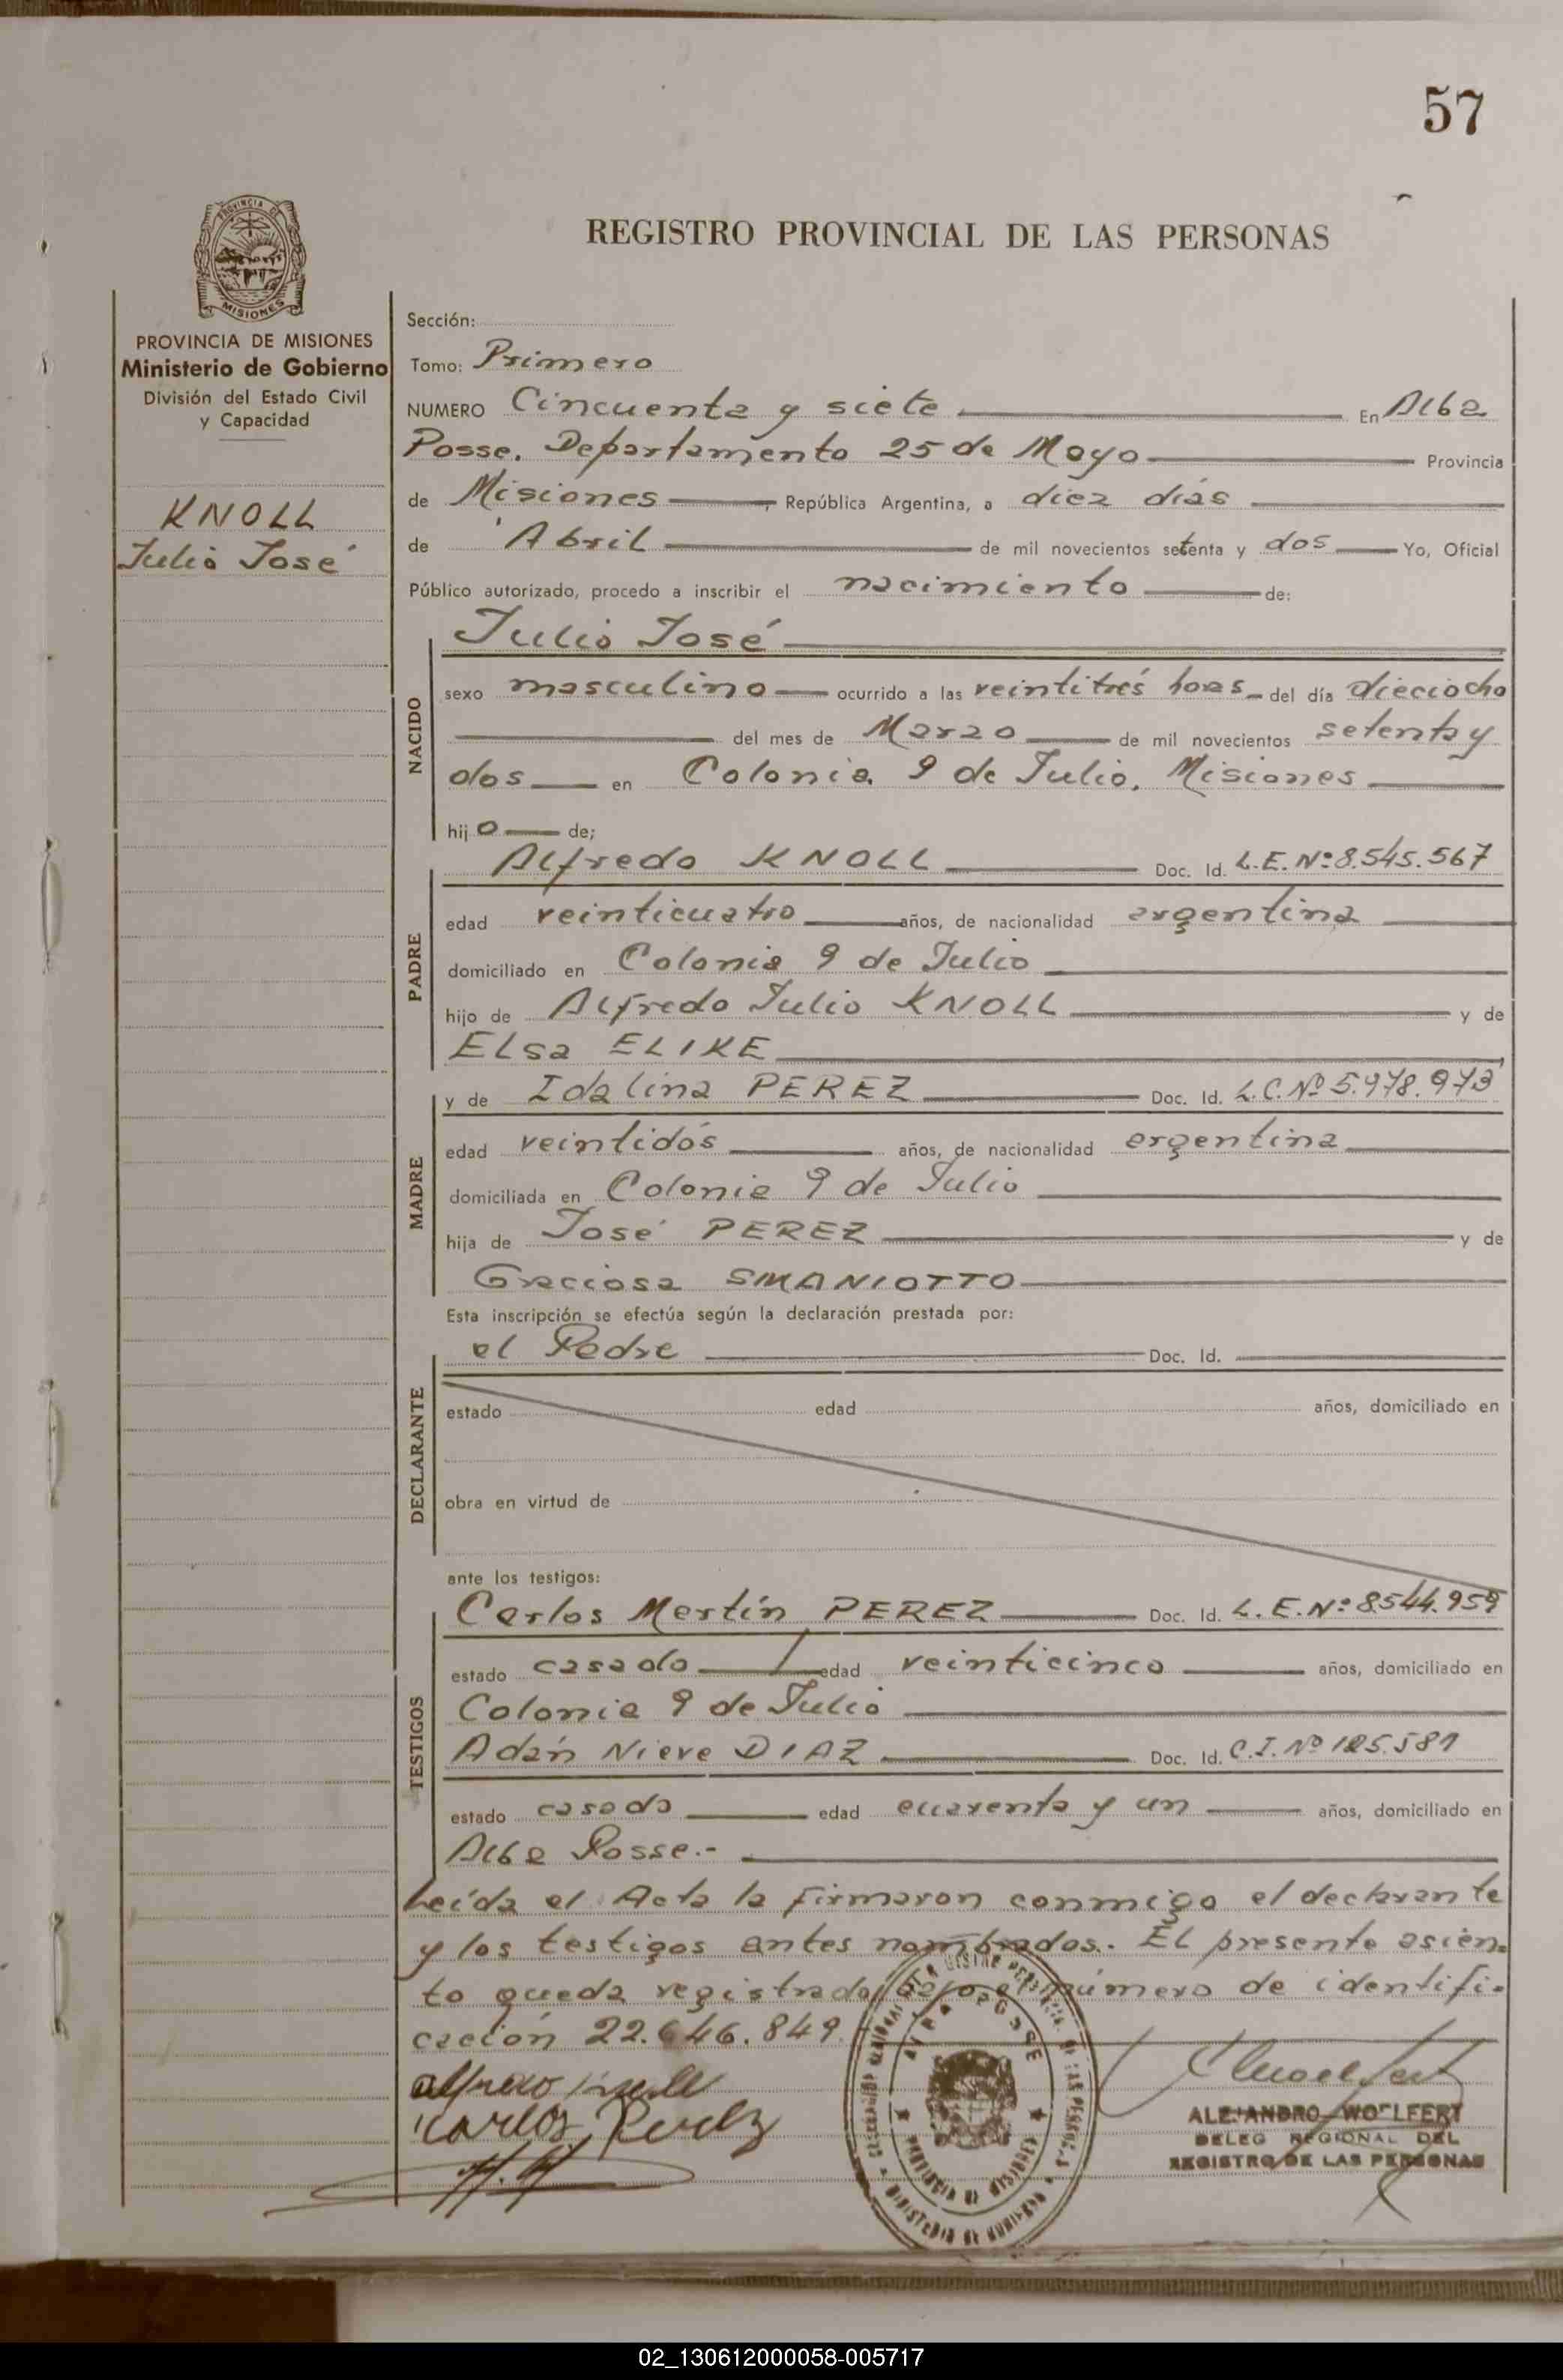 57
PROVINCIA DE
MISIONES
REGISTRO PROVINCIAL DE LAS PERSONAS
PROVINCIA DE MISIONES
Ministerio de Gobierno
División del Estado Civil
y Capacidad
KNOLL
Julio José
Sección:
Tomo: Primero
NUMERO Cincuenta y siete En Alba
Posse. Departamento 25 de Mayo Provincia
de Misiones, República Argentina, a diez días
de Abril de mil novecientos setenta y dos Yo, Oficial
Público autorizado, procedo a inscribir el nacimiento de:
NACIDO
Julio José
sexo masculino ocurrido a las veintitrés horas del día dieciocho
del mes de Marzo de mil novecientos setenta y
dos en Colonia 9 de Julio, Misiones
hijo de;
PADRE
Alfredo KNOLL Doc. Id. L.E.Nº 8.545.567
edad veinticuatro años, de nacionalidad argentina
domiciliado en Colonia 9 de Julio
hijo de Alfredo Julio KNOLL y de
Elsa ELIKE
MADRE
y de Idalina PEREZ Doc. Id. L.C.Nº 5.978.973
edad veintidós años, de nacionalidad argentina
domiciliada en Colonia 9 de Julio
hija de José PEREZ y de
Graciosa SMANIOTTO
Esta inscripción se efectúa según la declaración prestada por:
DECLARANTE
el Padre Doc. Id.
estado edad años, domiciliado en
obra en virtud de
ante los testigos:
TESTIGOS
Carlos Martín PEREZ Doc. Id. L.E.Nº 8544.959
estado casado edad veinticinco años, domiciliado en
Colonia 9 de Julio
Adán Nieve DIAZ Doc. Id. C.I.Nº 125.581
estado casado edad cuarenta y un años, domiciliado en
Alba Posse.-
Leída el Acta la firmaron conmigo el declarante
y los testigos antes nombrados. El presente asien-
to queda registrado bajo el número de identifi-
cación 22.646.849.
Alfredo Knoll
Carlos Perez
ALBA POSSE
PROVINCIA DE MISIONES
MINISTERIO DE GOBIERNO
ALEJANDRO WOELFERT
DELEG REGIONAL DEL
REGISTRO DE LAS PERSONAS
02_130612000058-005717